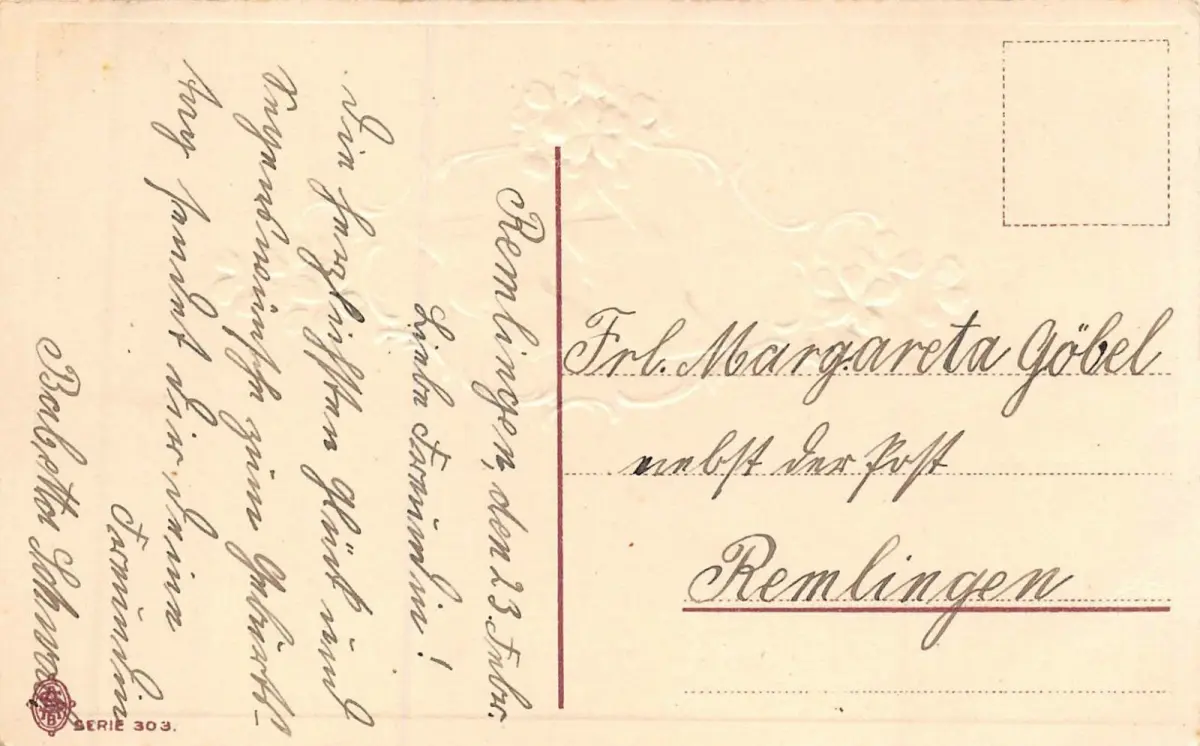 Remlingen, den 23. Febr.
Liebe Freundin!
Die herzlichsten Glück und
Segenswünsche zum Geburts-
tag sendet dir deine
Freundin
Babetta
Frl. Margareta Göbel
nebst der Post
Remlingen
SERIE 303.